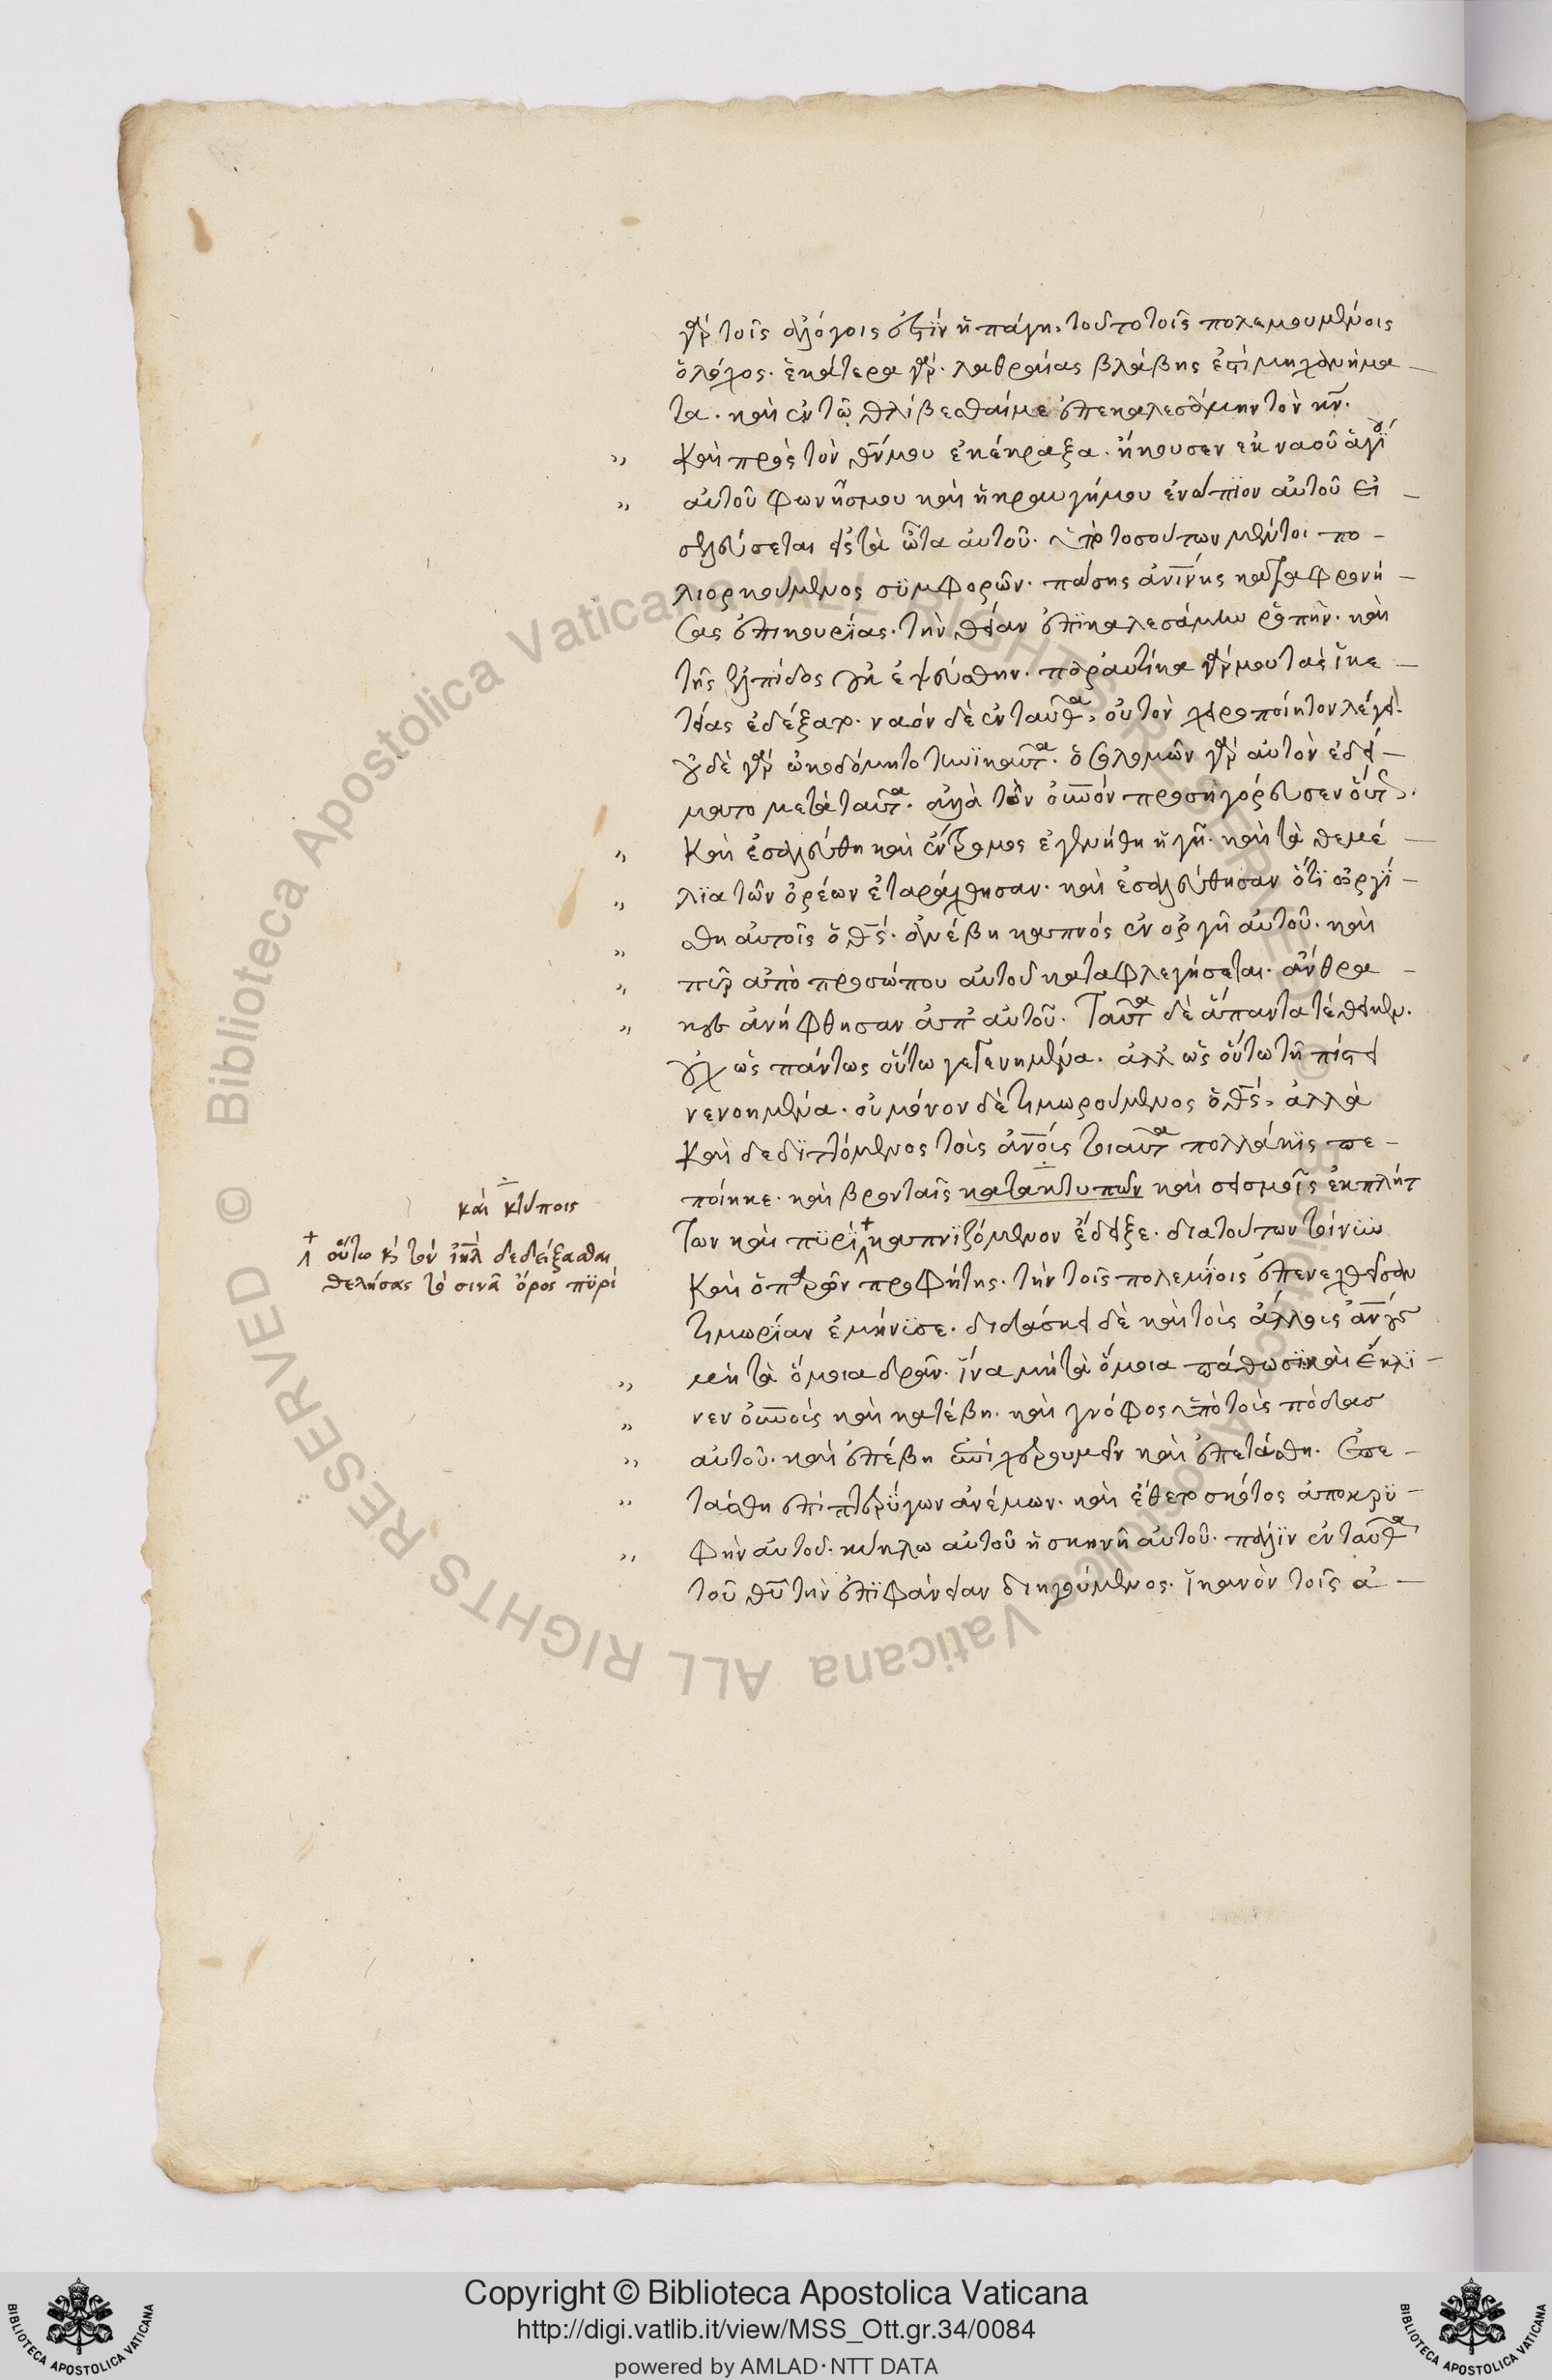 γὰρ τοῖς ἀλόγοις ἐστὶν ἡ πάγη, τοῦτο τοῖς πολεμουμένοις
ὁ λόχος. ἑκάτερα γὰρ λαθραίας βλάβης ἐστὶ μηχανήμα-
τα. καὶ ἐν τῷ θλίβεσθαί με ἐπεκαλεσάμην τὸν κν.
„ καὶ πρὸς τὸν θν μου ἐκέκραξα. ἤκουσεν ἐκ ναοῦ ἁγίου
„ αὐτοῦ φωνῆς μου καὶ ἡ κραυγή μου ἐνώπϊον αὐτοῦ εἰ-
σελεύσεται εἰς τὰ ὦτα αὐτοῦ. ὑπὸ τοσούτων μέντοι πο-
λιορκούμενος σϋμφορῶν. πάσης ἀνίνης καταφρονή-
σας ἐπικουρίας. τὴν θείαν ἐπϊκαλεσάμην ῥοπήν. καὶ
τῆς ἐλπίδος οὐκ ἐψεύσθην. παραυτίκα γάρ μου τὰς ἱκε-
τείας ἐδέξατο. ναὸν δὲ ἐνταῦθα, οὐ τὸν χειροποίητον λέγει.
οὐδὲ γὰρ ὠκοδόμητο τηνϊκαῦτα. ὁ σολομῶν γὰρ αὐτὸν ἐδεί-
ματο μετὰ ταῦτα. ἀλλὰ τὸν οὐνον προσηγόρευσεν οὕτως.
„ καὶ ἐσαλεύθη καὶ ἔντρομος ἐγενήθη ἡ γῆ. καὶ τὰ θεμέ-
„ λϊα τῶν ὀρέων ἐταράχθησαν. καὶ ἐσαλεύθησαν ὅτϊ ὠργί-
„ σθη αὐτοῖς ὁ θς. ἀνέβη καπνὸς ἐν ὀργῇ αὐτοῦ. καὶ
„ πῦρ ἀπὸ προσώπου αὐτοῦ καταφλεγήσεται. ἄνθρα-
„ κες ἀνήφθησαν ἀπ' αὐτοῦ. Ταῦτα δὲ ἅπαντα τέθεικεν.
οὐχ ὡς πάντως οὕτω γεγενημένα. ἀλλ' ὡς οὕτω τῇ πίστει
νενοημένα. οὐ μόνον δὲ τιμωρούμενος ὁ θς, ἀλλὰ
καὶ δεδϊττόμενος τοὺς ἀνους τοιαῦτα πολλάκϊς πε-
ποίηκε. καὶ βρονταῖς κατακτυπῶν καὶ σεισμοῖς ἐκπλήτ
των καὶ πϋρὶ καπνϊζόμενον ἔδειξε. διὰ τούτων τοίνϋν
καὶ ὁ παρὼν προφήτης. τὴν τοῖς πολεμίοις ἐπενεχθεῖσαν
τιμωρίαν ἐμήνϋσε. διδάσκει δὲ καὶ τοὺς ἄλλους ἀνους
„ μὴ τὰ ὅμοια δρᾶν. ἵνα μὴ τὰ ὅμοια πάθωσϊ. καὶ ἔκλϊ-
„ νεν οὐνους καὶ κατέβη. καὶ γνόφος ὑπὸ τοὺς πόδας
„ αὐτοῦ. καὶ ἐπέβη ἐπὶ χερουβεὶμ καὶ ἐπετάσθη. ἐπε-
„ τάσθη ἐπὶ πτερΰγων ἀνέμων. καὶ ἔθετο σκότος ἀποκρϋ-
„ φὴν αὐτοῦ. κύκλω αὐτοῦ ἡ σκηνὴ αὐτοῦ. πάλϊν ἐνταῦθα
τοῦ θυ τὴν ἐπϊφάνειαν διηγούμενος. ἱκανὸν τοῖς ἀ-
καὶ κτύποις
οὕτω κ τὸν ιηλ δεδείξασθαι
θελήσας τὸ σινᾶ ὄρος πϋρὶ
Copyright © Biblioteca Apostolica Vaticana
http://digi.vatlib.it/view/MSS_Ott.gr.34/0084
powered by AMLAD·NTT DATA
BIBLIOTECA APOSTOLICA VATICANA
BIBLIOTECA APOSTOLICA VATICANA
© Biblioteca Apostolica Vaticana ALL RIGHTS RESERVED
© Biblioteca Apostolica Vaticana ALL RIGHTS RESERVED